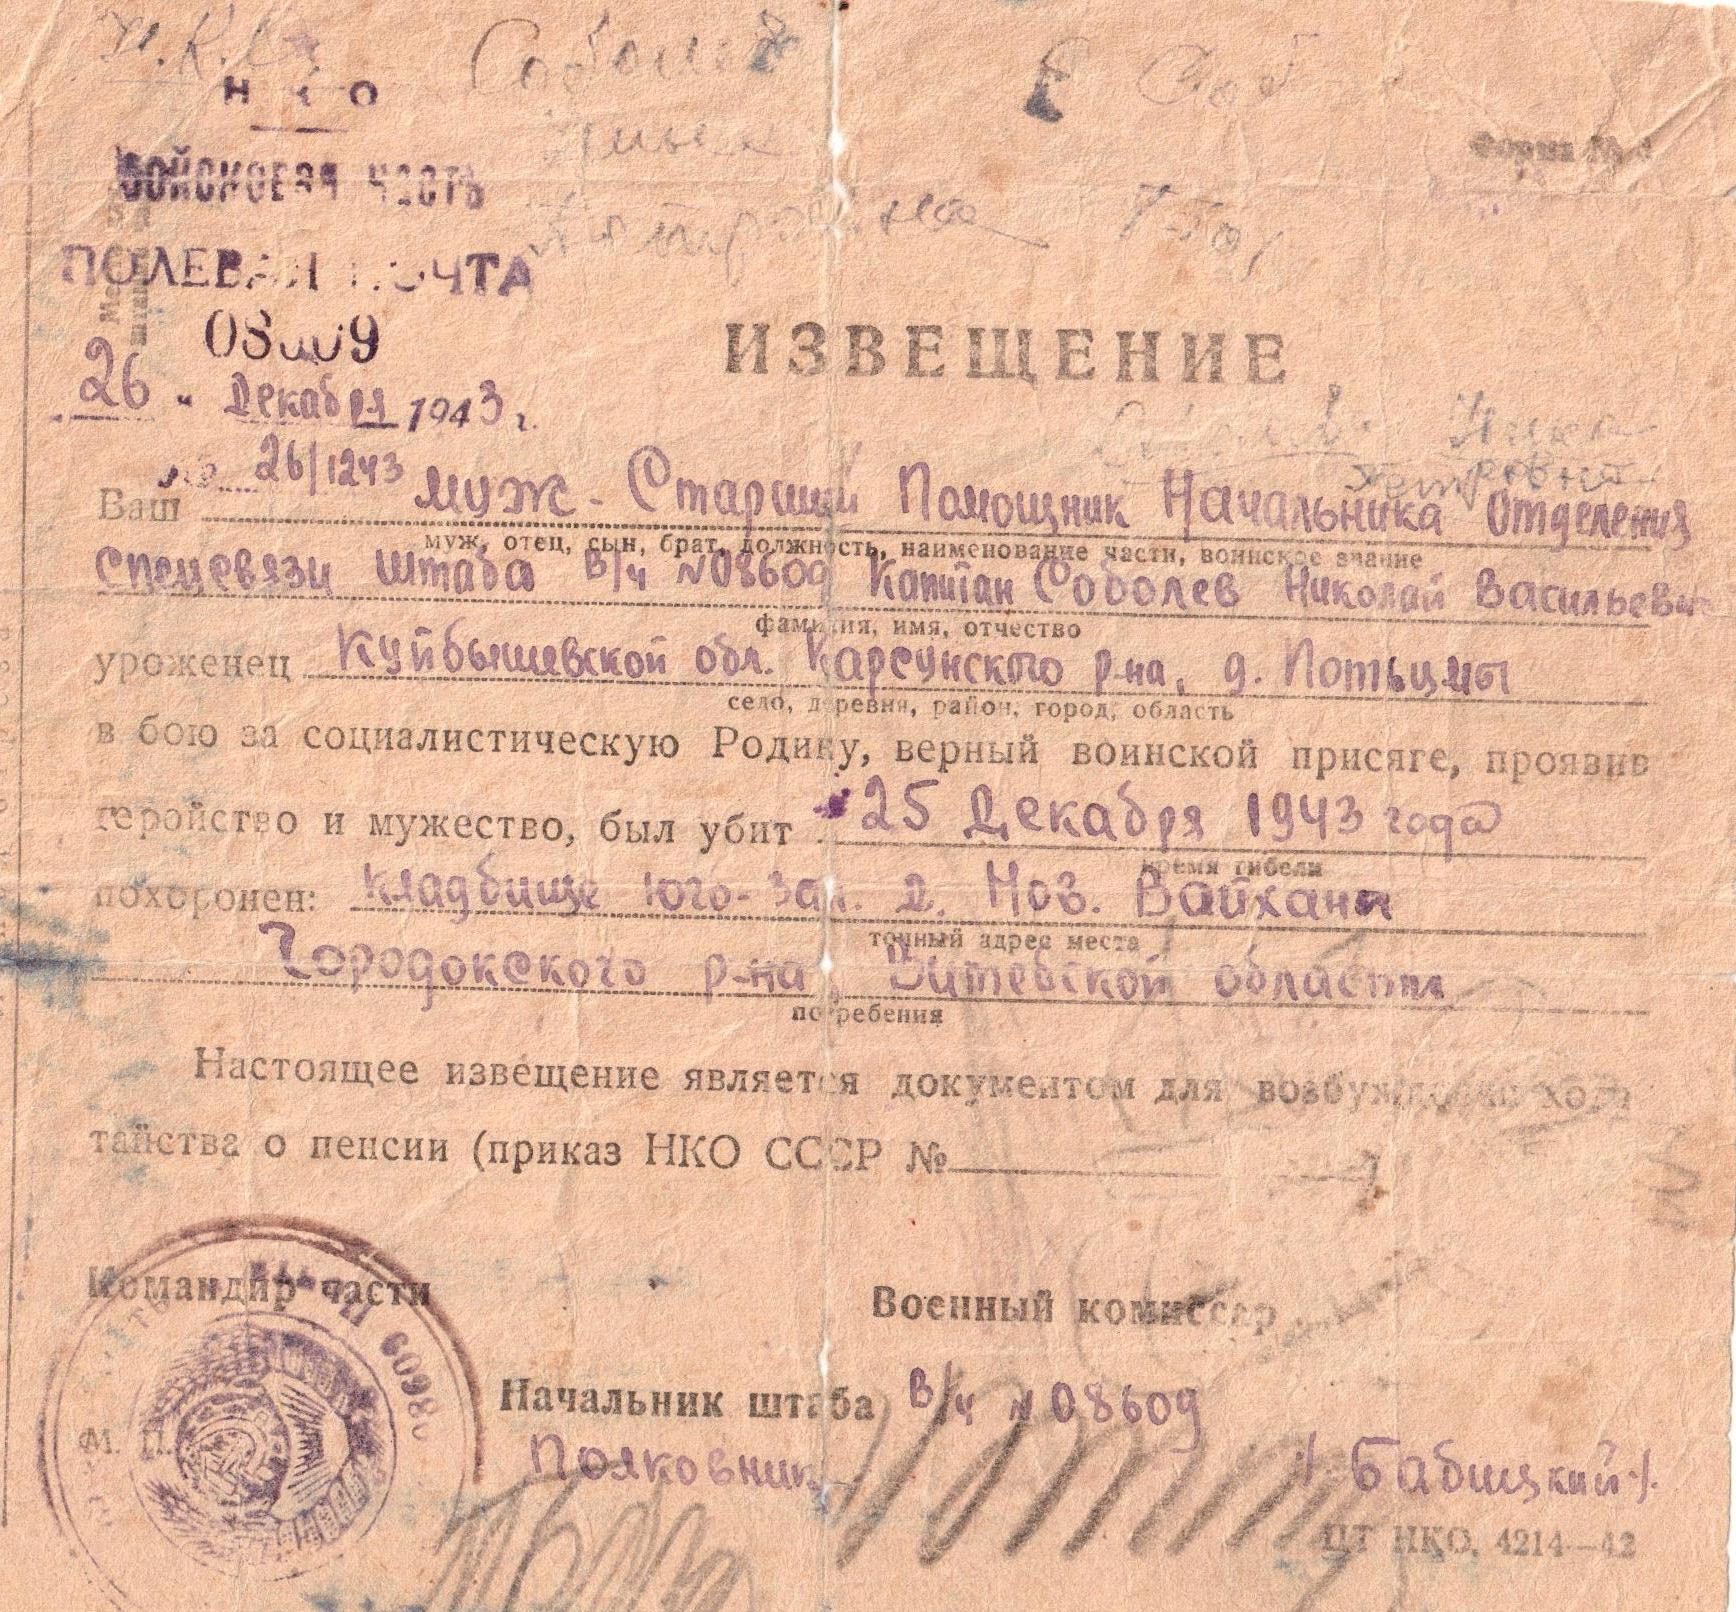 Соболев
НКО
Форма №
ВОЙСКОВАЯ ЧАСТЬ
ПОЛЕВАЯ ПОЧТА
08609
ИЗВЕЩЕНИЕ
26 " Декабря 1943 г.
№ 26/1243
Ваш муж - Старший Помощник Начальника Отделения
муж, отец, сын, брат, должность, наименование части, воинское звание
спецсвязи штаба в/ч N 08609 Капитан Соболев Николай Васильевич
фамилия, имя, отчество
уроженец Куйбышевской обл. Карсунского р-на, д. Потьцмы
село, деревня, район, город, область
в бою за социалистическую Родину, верный воинской присяге, проявив
геройство и мужество, был убит 25 Декабря 1943 года
время гибели
похоронен: кладбище юго-зап. д. Нов. Вайхани
точный адрес места
Городокского р-на, Витебской области
погребения
Настоящее извещение является документом для возбуждения хода-
тайства о пенсии (приказ НКО СССР №
Командир части
Военный комиссар
08609
М. П.
Начальник штаба в/ч N 08609
Полковник /Бабицкий/.
ЦТ НКО, 4214—42